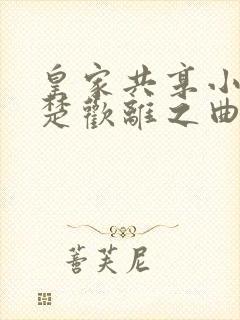 皇家共享小
楚歡離之曲
蓇芙尼